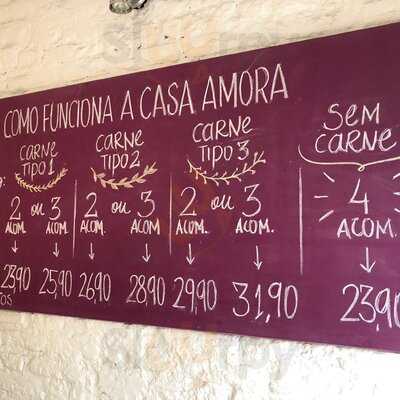 COMO FUNCIONA A CASA AMORA
CARNE TIPO 1
CARNE TIPO 2
CARNE TIPO 3
SEM CARNE
2 ou 3 2 ou 3 2 ou 3 4
ACOM. ACOM. ACOM. ACOM. ACOM. ACOM. ACOM.
23,90 25,90 26,90 28,90 29,90 31,90 23,90